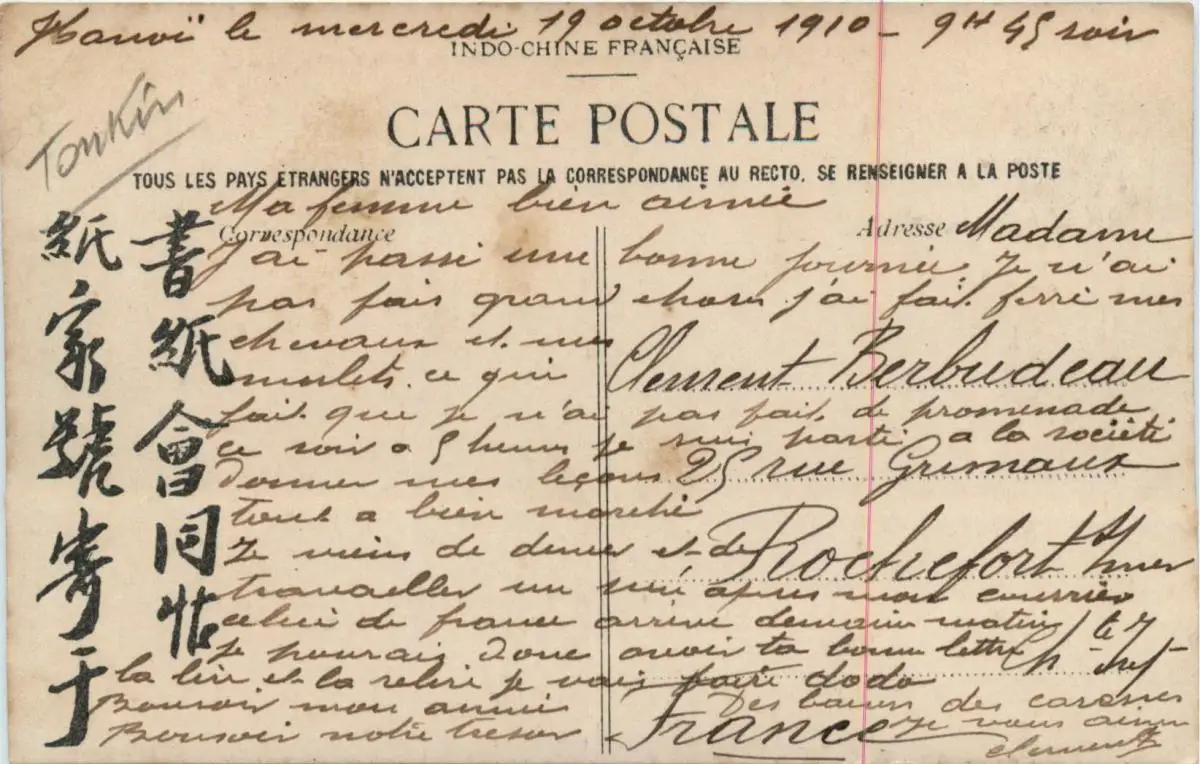 Hanoï le mercredi 19 octobre 1910 - 9H 45 soir
INDO-CHINE FRANÇAISE
CARTE POSTALE
Tonkin
TOUS LES PAYS ÉTRANGERS N'ACCEPTENT PAS LA CORRESPONDANCE AU RECTO, SE RENSEIGNER A LA POSTE
Ma femme bien aimée
Correspondance
Adresse Madame
J'ai passé une bonne journée. Je n'ai
pas fais grand chose. j'ai fait ferré mes
chevaux et mes
mulets. ce qui
Clement Berbudeau
fait que je n'ai pas fait de promenade
ce soir a 5 heures je suis parti a la société
donner mes leçons
25 rue Grimaux
tout a bien marché
Je viens de diner et de
Rochefort s/mer
travailler un peu après mon courrier
celui de france arrive demain matin
je pourai donc avoir ta bonne lettre
Ch te Inf
la lire et la relire je vais faire dodo
Bonsoir mon aimée
Des baisers des caresses
Bonsoir notre tresor
France
je vous aime
Clement
書紙會同帖
紙家號寄于